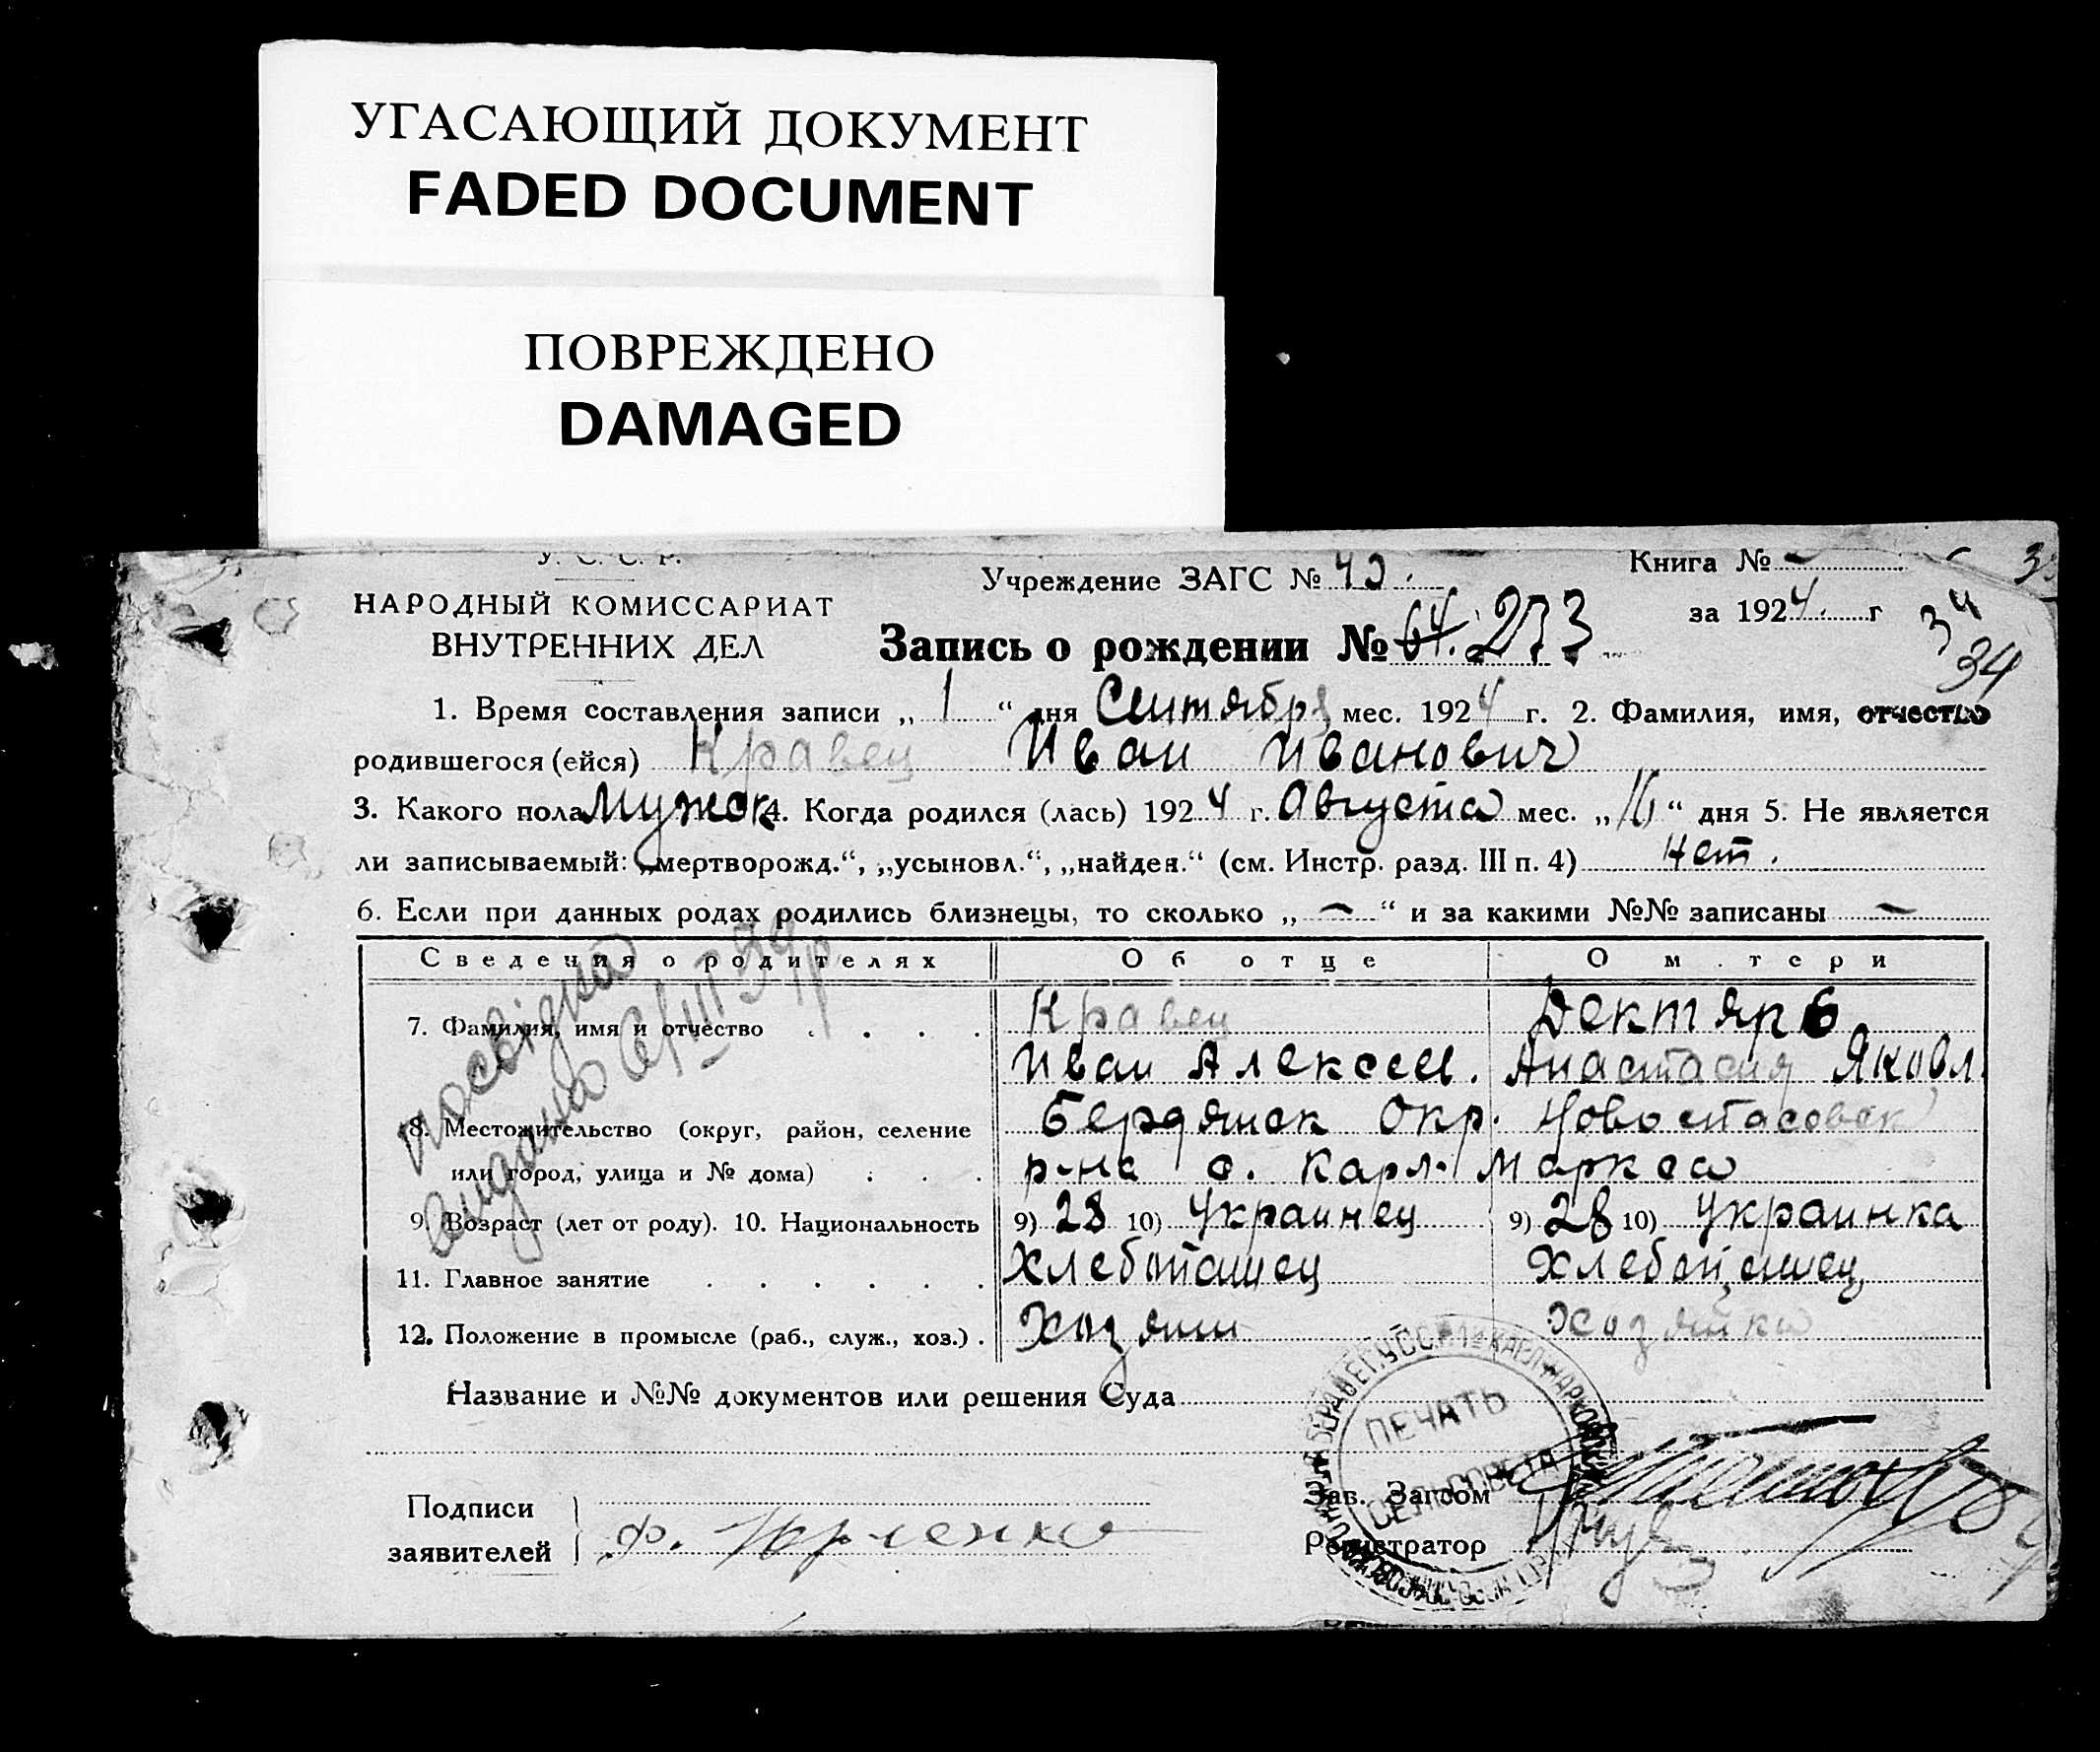 УГАСАЮЩИЙ ДОКУМЕНТ
FADED DOCUMENT
ПОВРЕЖДЕНО
DAMAGED
У. С. С. Р.
НАРОДНЫЙ КОМИССАРИАТ
ВНУТРЕННИХ ДЕЛ
Учреждение ЗАГС №
Книга №
за 1924 г
34
34
Запись о рождении № 64. 273
1. Время составления записи „ 1 “ дня Сентября мес. 1924 г. 2. Фамилия, имя, отчество
родившегося (ейся) Кравец Иван Иванович
3. Какого пола Мужск 4. Когда родился (лась) 1924 г. Августа мес. „16“ дня 5. Не является
ли записываемый: „мертворожд.“, „усыновл.“, „найден.“ (см. Инстр. разд. III п. 4) Нет.
6. Если при данных родах родились близнецы, то сколько „ — “ и за какими №№ записаны —
Сведения о родителях Об отце О м тери
7. Фамилия, имя и отчество . . . . Кравец Дектярь
Иван Алексеев. Анастасия Яковл.
8. Местожительство (округ, район, селение Бердянск Окр. Новоспасовск
или город, улица и № дома) . . . р-на с. Карл. Маркса
9. Возраст (лет от роду). 10. Национальность 9) 28 10) Украинец 9) 28 10) Украинка
11. Главное занятие . . . . . . Хлебопашец Хлебопашец
12. Положение в промысле (раб., служ., хоз.) . Хозяин Хозяйка
посвідка
видана
Название и №№ документов или решения Суда
ПЕЧАТЬ
СЕЛЬСОВЕТА
Подписи
заявителей
Зав. Загсом
Регистратор